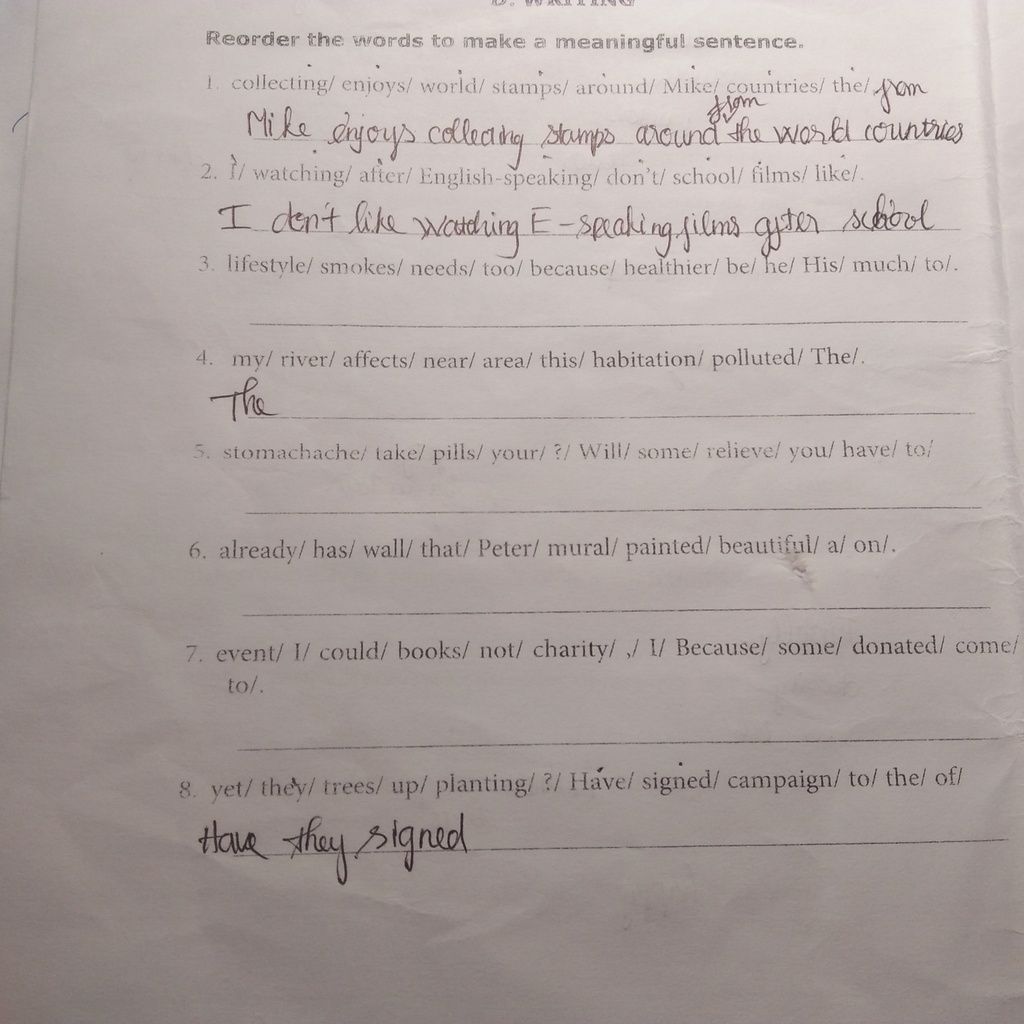 Reorder the words to make a meaningful sentence.
1. collecting/ enjoys/ world/ stamps/ around/ Mike/ countries/ the/ from
from
Mike enjoys collecting stamps around the world countries
2. I/ watching/ after/ English-speaking/ don't/ school/ films/ like/.
I don't like watching E-speaking films after school
3. lifestyle/ smokes/ needs/ too/ because/ healthier/ be/ he/ His/ much/ to/.
4. my/ river/ affects/ near/ area/ this/ habitation/ polluted/ The/.
The
5. stomachache/ take/ pills/ your/ ?/ Will/ some/ relieve/ you/ have/ to/
6. already/ has/ wall/ that/ Peter/ mural/ painted/ beautiful/ a/ on/.
7. event/ I/ could/ books/ not/ charity/ ,/ I/ Because/ some/ donated/ come/
to/.
8. yet/ they/ trees/ up/ planting/ ?/ Have/ signed/ campaign/ to/ the/ of/
Have they signed